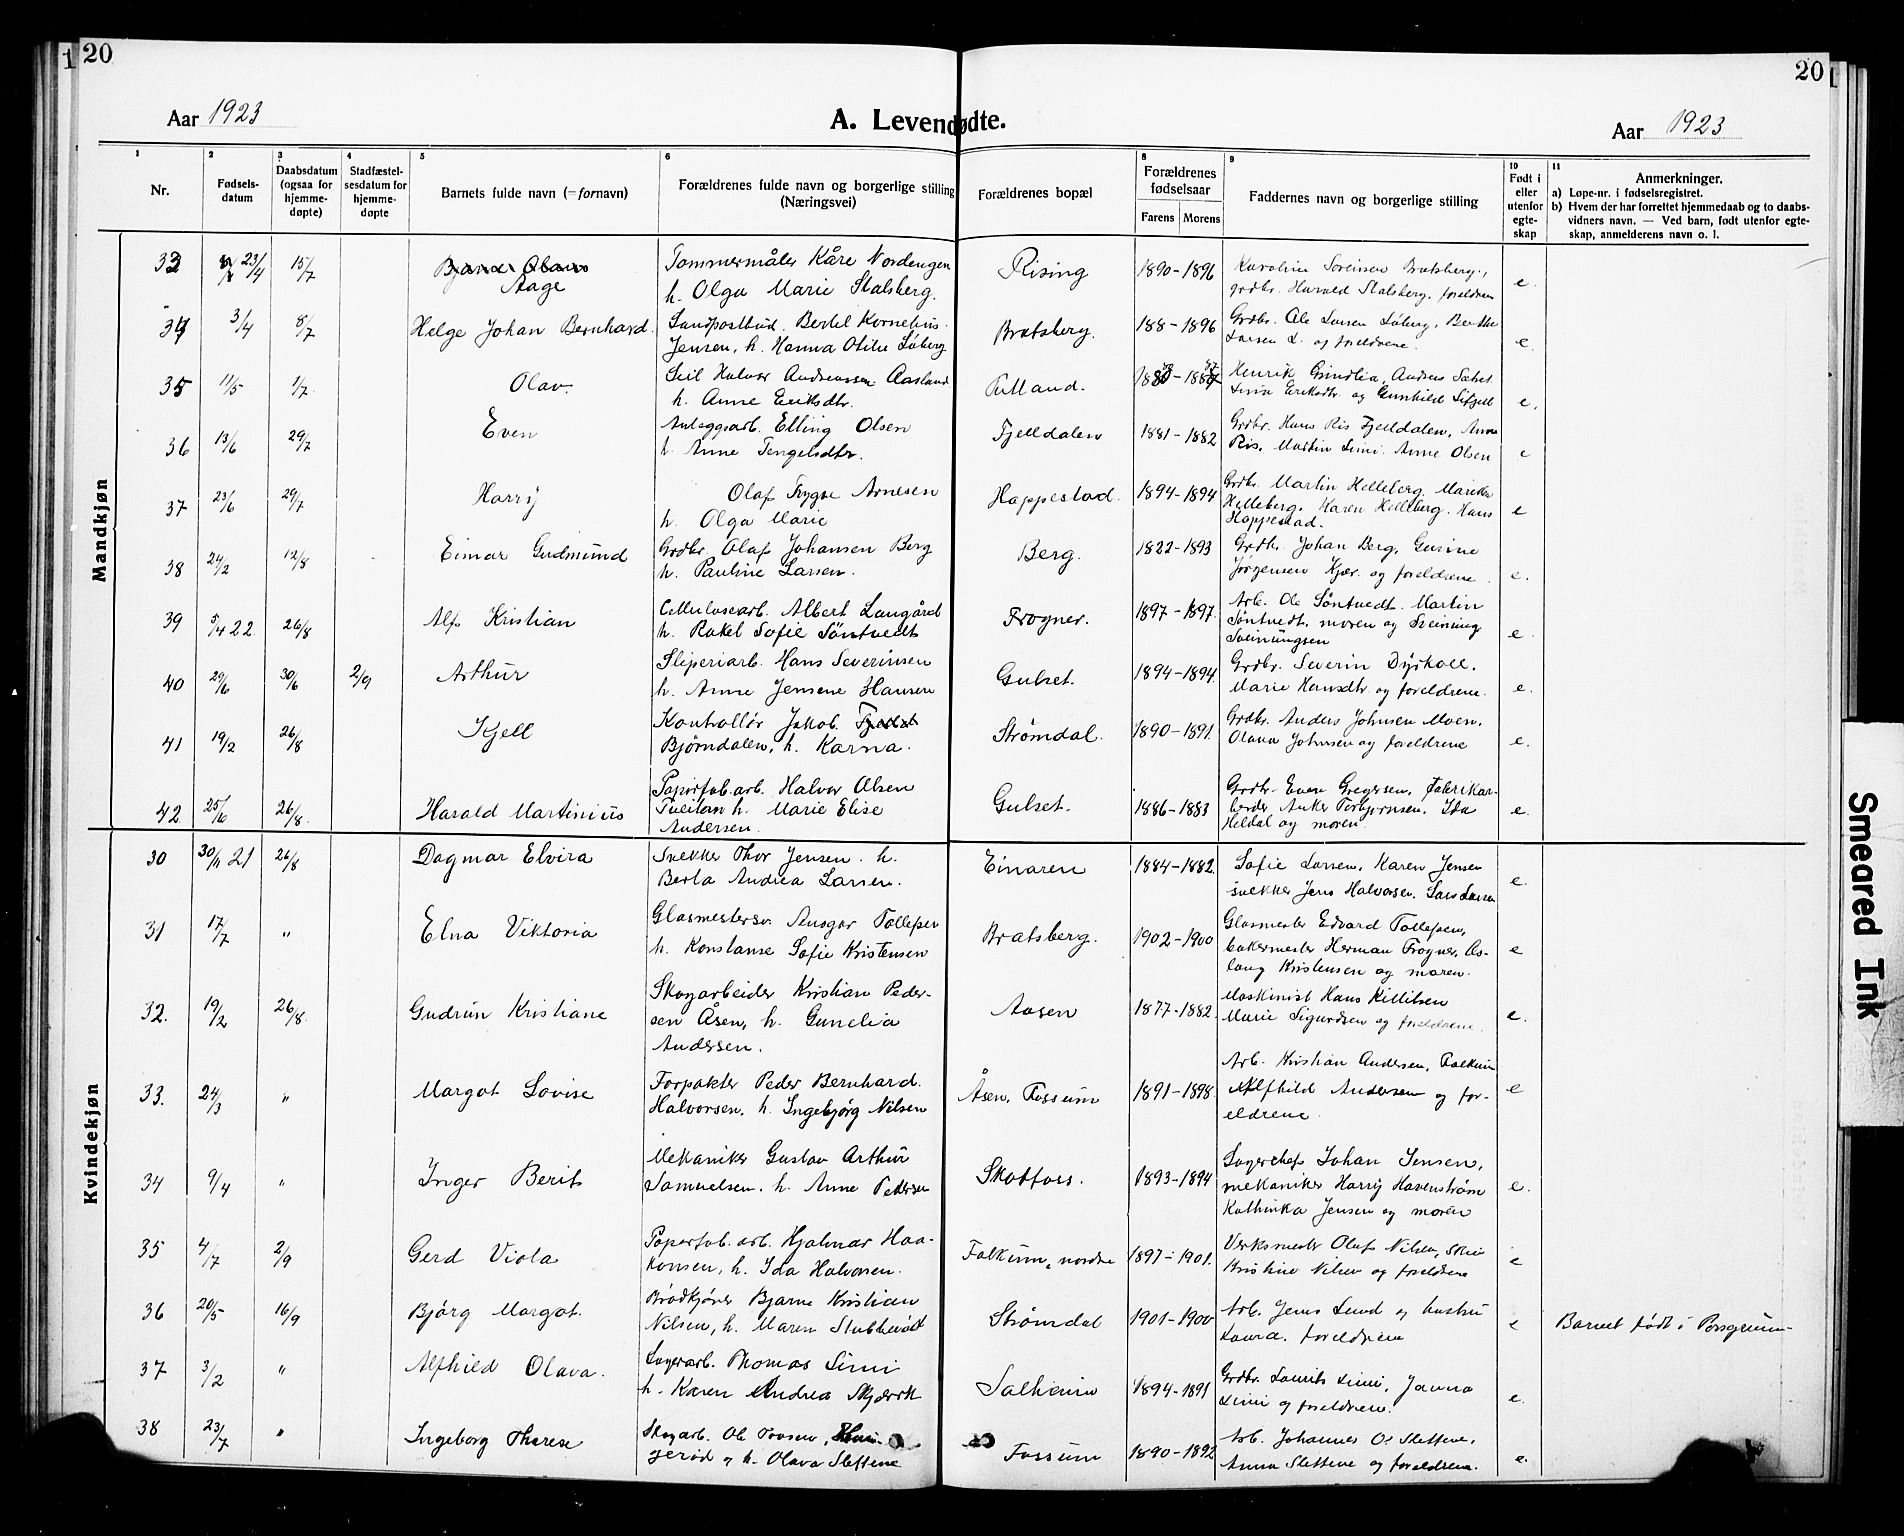 20
20
Aar 1923
A. Levendødte.
Aar 1923
1 2 3 4 5 6 8 9 10 11
Nr.
Fødsels-
datum
Daabsdatum
(ogsaa for
hjemme-
døpte)
Stadfæstel-
sesdatum for
hjemme-
døpte
Barnets fulde navn (=fornavn)
Forældrenes fulde navn og borgerlige stilling
(Næringsvei)
Forældrenes bopæl
Forældrenes
fødselsaar
Farens Morens
Faddernes navn og borgerlige stilling
Født i
eller
utenfor
egte-
skap
Anmerkninger.
a) Løpe-nr. i fødselsregistret.
b) Hvem der har forrettet hjemmedaab og to daabs-
vidners navn. — Ved barn, født utenfor egte-
skap, anmelderens navn o. l.
Mandkjøn
33 23/4 15/7 Bjarne Olaus
Aage
Tømmermåler Kåre Nordengen
h. Olga Marie Stalsberg.
Rising 1890-1896
Karoline Sørensen Bratsberg,
grdbr. Harald Stalsberg, foreldrene
e.
34 3/4 8/7 Helge Johan Bernhard.
Landpostbud. Bertel Kornelius
Jensen, h. Hanna Otilie Løberg
Bratsberg. 188-1896
Grdbr. Ole Larsen Løberg, Berthe
Larsen L. og foreldrene.
e.
35 11/5 1/7. Olav.
Halvor Andreassen Aasland
h. Anne Eriksdtr.
Henrik Grindlia, Anders
Eriksdtr. og Gunhild
e.
36 13/6 29/7 Even
Anleggsarb. Elling Olsen
h. Anne Tengelsdtr.
Fjelldalen 1881-1882
Grdbr. Hans Ris Fjelldalen, Anne
Ris, Martin Limi. Anne Olsen
e
37 23/6 29/7 Harry
Olaf Trygve Arnesen
h. Olga Marie
Hoppestad. 1894-1894
Grdbr. Martin Helleberg. Marekka
Helleberg. Karen Helleberg. Hans
Hoppestad.
e
38 24/2 12/8 Einar Gudmund
Grdbr. Olaf Johansen Berg
h. Pauline Larsen.
Berg. 1822-1893
Grdbr. Johan Berg, Gurine
Jørgensen Kjær. og foreldrene.
e.
39 5/4 22 26/8 Alf Kristian
Cellulosearb. Albert Langård
h. Rakel Sofie Søntvedt
Frogner. 1897-1897.
Arb. Ole Søntvedt. Martin
Søntvedt, moren og Sveinung
Sveinungsen
e
40 29/6 30/6 2/9 Arthur
Sliperiarb. Hans Severinsen
h. Anne Jensene Hansen
Gulset. 1894-1894.
Grdbr. Severin Dyrkoll.
Marie Hansdtr. og foreldrene.
e.
41 19/2 26/8 Kjell
Kontrollør Jakob
Bjørndalen, h. Karna.
Strømdal. 1890-1891.
Grdbr. Anders Johnsen Moen,
Olava Johnsen og foreldrene
e.
42 25/6 26/8. Harald Martinius
Papirfab.arb. Halvor Olsen
Tveitan h. Marie Elise
Andersen.
Gulset. 1886-1883
Grdbr. Even Gregersen, Fabrikar-
beider Anker Torbjørnsen, Ida
Heldal og moren.
e.
Kvindekjøn
30 30/11 21 26/8 Dagmar Elvira
Svekker Thor Jensen. h.
Berta Andrea Larsen.
Einaren 1884-1882.
Sofie Larsen, Karen Jensen
svekker Jens Halvorsen, Lars Larsen
e.
31 17/7 " Elna Viktoria
Glasmestersv. Ansgar Tollefsen
h. Konstanse Sofie Kristensen
Bratsberg. 1902-1900
Glasmester Edvard Tollefsen,
bakermester Herman Frogner, As-
laug Kristensen og moren.
e
32. 19/2 26/8. Gudrun Kristiane
Skogarbeider Kristian Peder-
sen Åsen, h. Gunelia
Andersen.
Aasen 1877-1882.
Maskinist Hans Killilsen
Marie Sigurdsen og foreldrene.
e.
33. 24/3 " Margot Lovise
Forpakter Peder Bernhard.
Halvorsen, h. Ingebjørg Nilsen
Åsen, Fossum 1891-1898.
Arb. Kristian Andersen, Falkum
Alfhild Andersen og for-
eldrene.
e
34 9/4 " Inger Berit
Mekaniker Gustav Arthur
Samuelsen. h. Anne Pedersen
Skotfoss. 1893-1894
Lagerchef Johan Jensen,
mekaniker Harry Havenstrøm
Kathinka Jensen og moren
e.
35 4/7 2/9 Gerd Viola
Paperfab. arb. Hjalmar Haa-
konsen, h. Ida Halvorsen.
Falkum, nordre 1897-1901.
Verksmester Olaf Nilsen,
Kristine Nilsen og foreldrene
e
36 20/5 16/9 Bjørg Margot.
Brødkjører Bjarne Kristian
Nilsen, h. Maren Stubberødt
Strømdal 1901-1900
Arb. Jens Lund og hustru
Laura. foreldrene
e
Barnet født i Porsgrunn
37 3/2 " Alfhild Olava.
Lagerarb. Thomas Limi
h. Karen Andrea Skjervk
Solheim 1894-1891
Grdbr. Laurits Limi, Janna
Limi og foreldrene.
e.
38 23/7 " Ingeborg Therese
Skogarb. Ole
h. Olava Slettene
Fossum 1890-1892
Arb. Johannes O. Slettene,
Anna Slettene og foreldrene.
e.
Smeared Ink